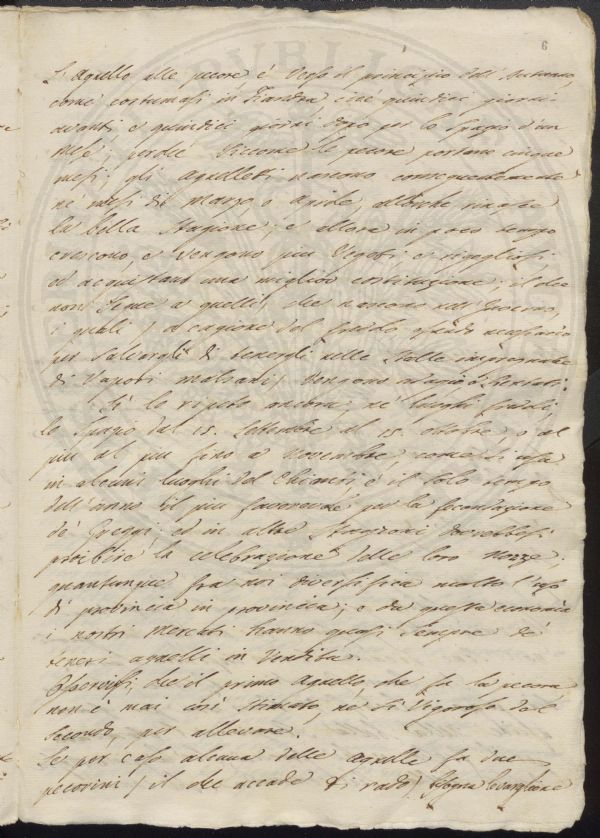 6
L'agnello alle pecore è verso il principio dell'Autunno,
come costumasi in Fiandra cioè quindici giorni
avanti, e quindici giorni dopo per lo spazio d'un
mese; perchè siccome le pecore portano cinque
mesi, gli agnelletti nascono conseguentemente
ne' mesi di marzo, o aprile, allorchè
la bella stagione; e allora in poco tempo
crescono, e vengono più vegeti, e
ed acquistano una miglior costituzione; il che
non segue a quelli, che nascono nell'Inverno,
i quali / a cagione del freddo
per salvargli di tenergli nelle stalle impregnate
di vapori malsani / vengono e stentati.
Sì lo ripeto ancora, ne' luoghi freddi,
lo spazio dal 15. Settembre al 15. ottobre, o al
più al più fino a novembre, come si usa
in alcuni luoghi del Chianti, è il solo tempo
dell'anno il più favorevole per la fecondazione
de' Greggi ed in altre stagioni dovrebbesi
proibire la celebrazione delle loro nozze,
quantunque fra noi diversifica molto l'uso
di provincia in provincia; e da questa economia
i nostri mercati hanno quasi sempre de'
teneri agnelli in vendita.
Osservisi, che il primo agnello, che fa la pecora
non è mai così stimato, nè sì vigoroso del
secondo, per allevare.
Se per caso alcuna delle agnelle fa due
pecorini / il che accade di rado /